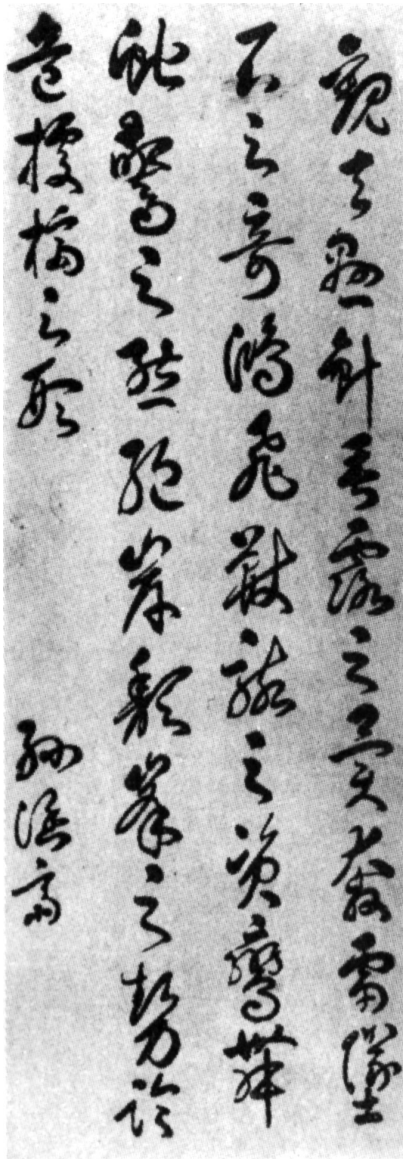 觀夫懸針垂露之異奔雷墜
石之奇鴻飛獸駭之資鸞舞
虵驚之態絕岸頹峯之勢臨
危據槁之形
孫